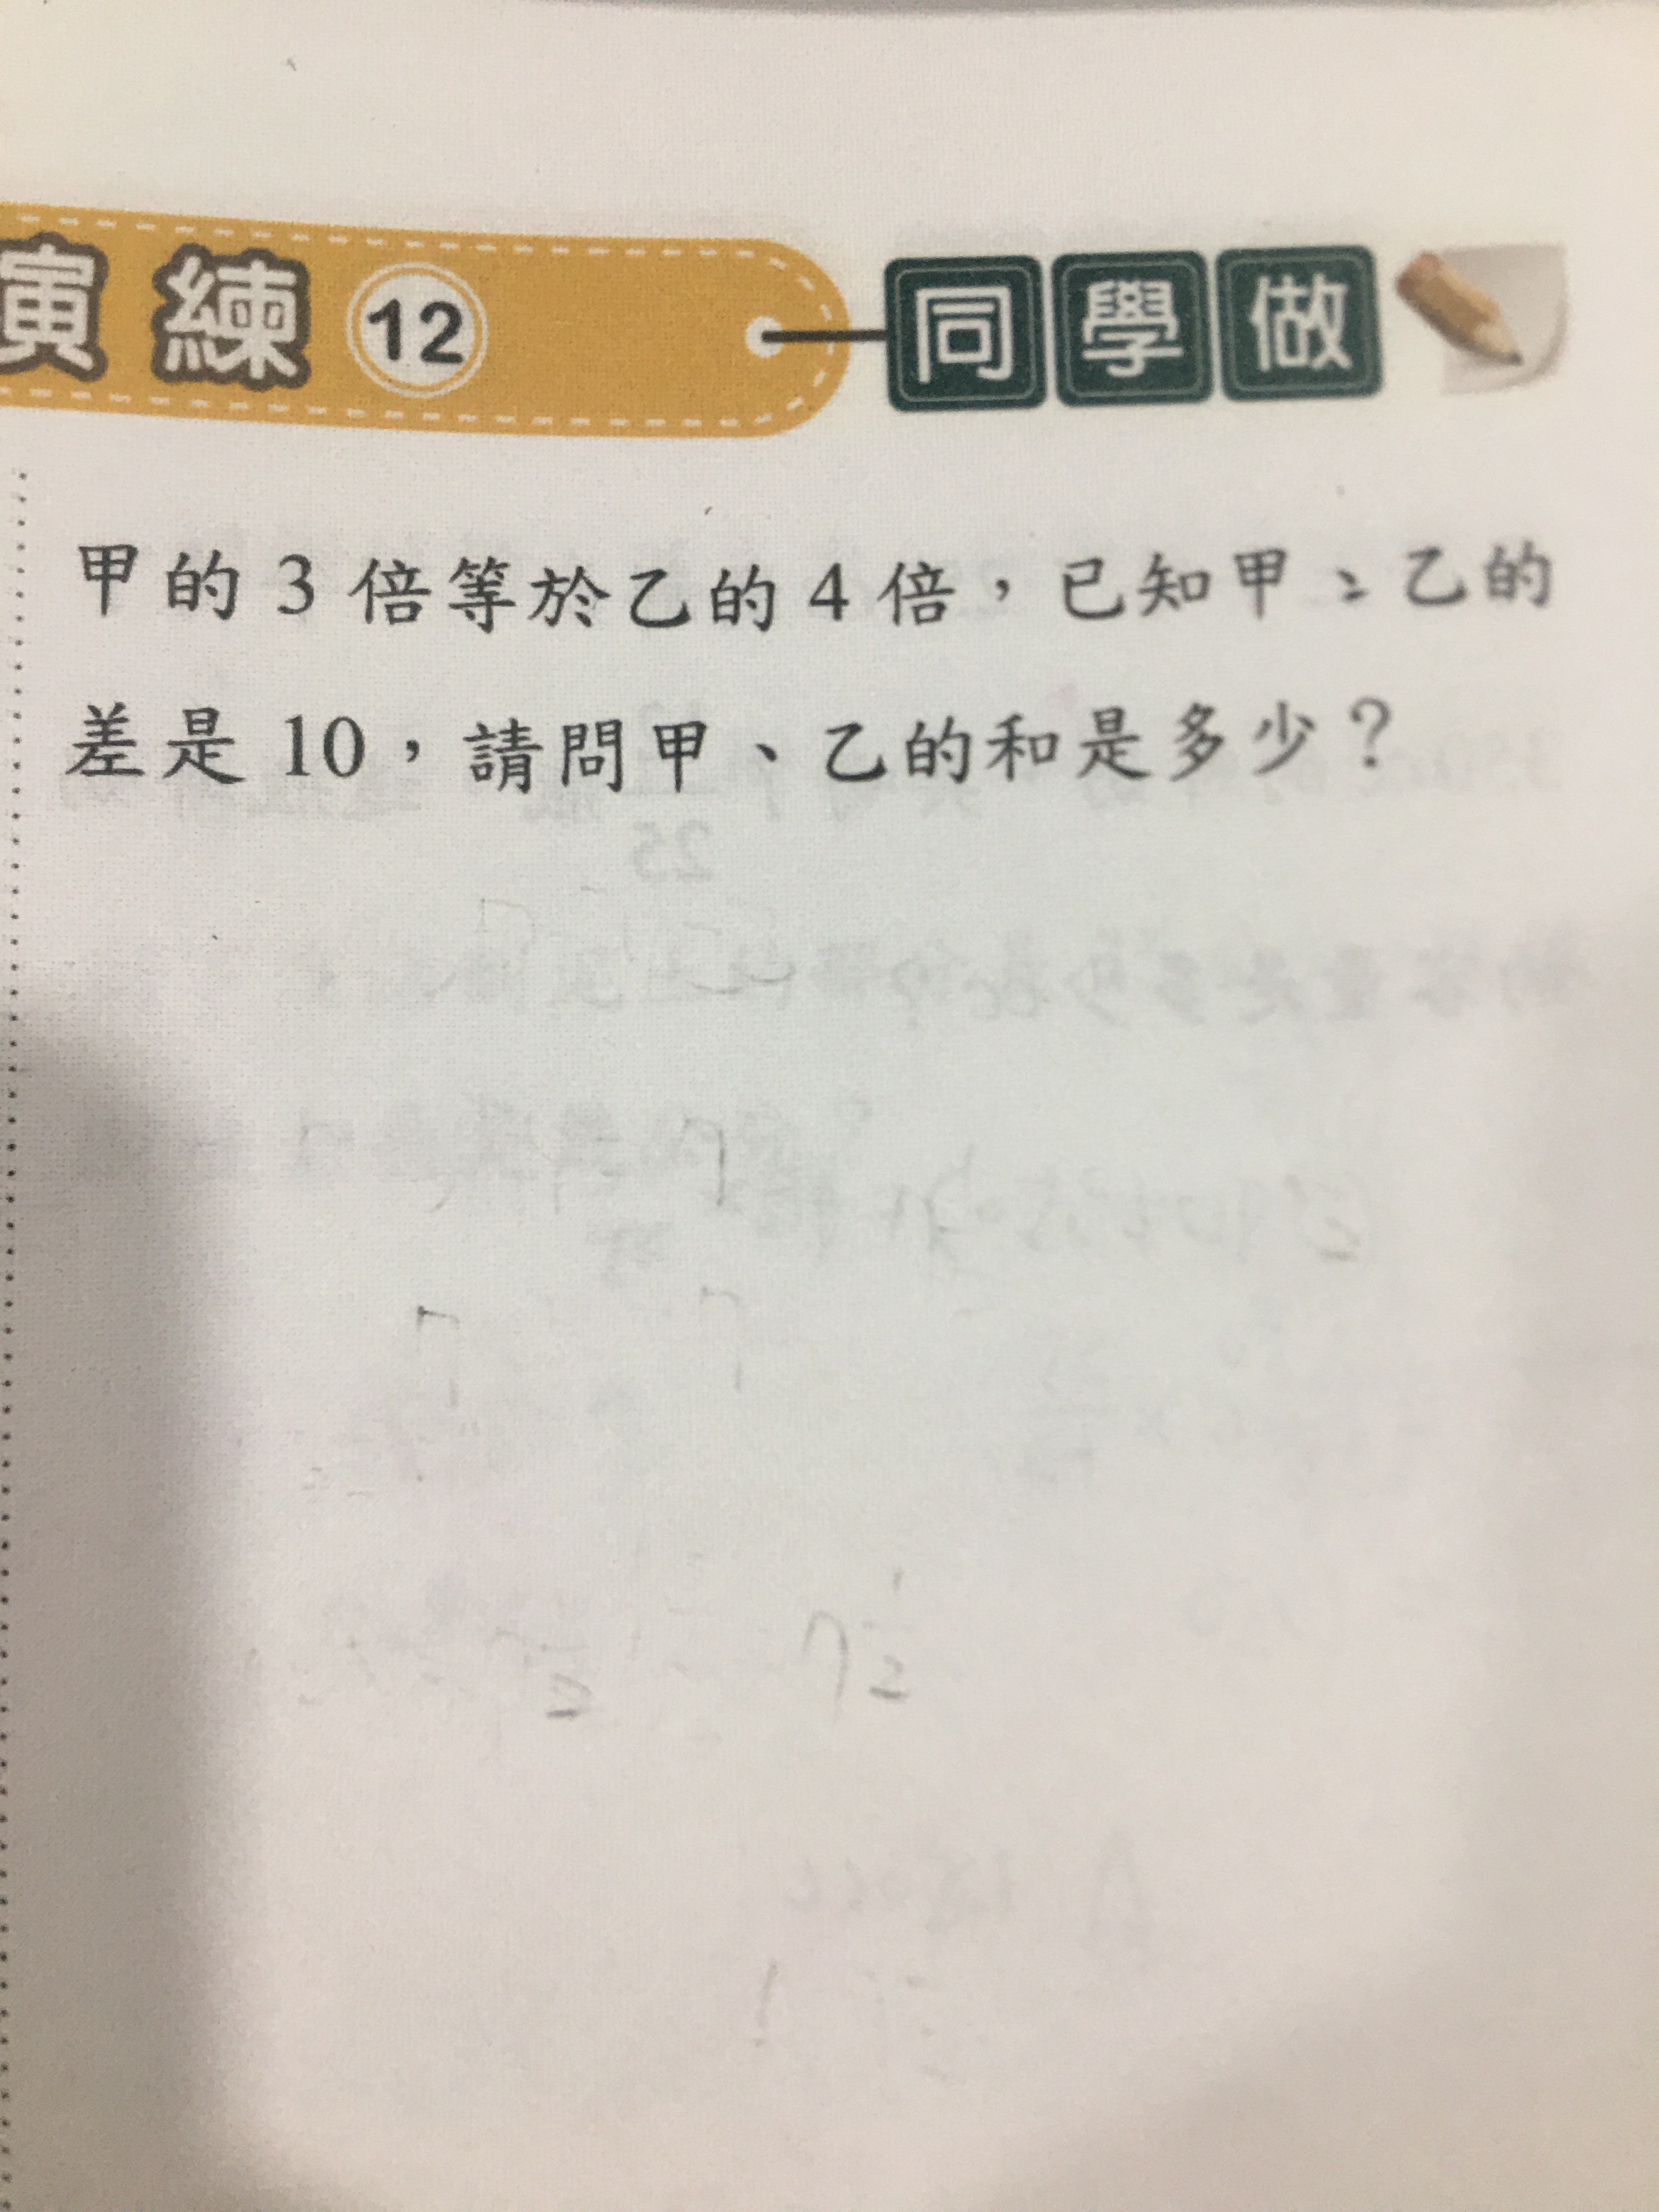 演練 12 同學做
甲的 3 倍等於乙的 4 倍，已知甲、乙的
差是 10，請問甲、乙的和是多少？